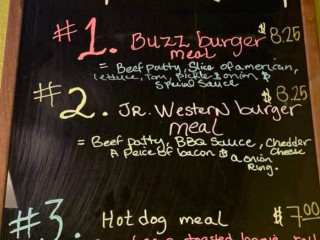 #1. Buzz burger $8.25
meal
= Beef patty, Slice of american,
lettuce, Tom, Pickle & onion, &
Special Sauce
#2. JR. Western burger $8.25
meal
= Beef patty, BBQ Sauce, Chedder Cheese
A peice of bacon & a onion
Ring.
#3. Hot dog meal $7.00